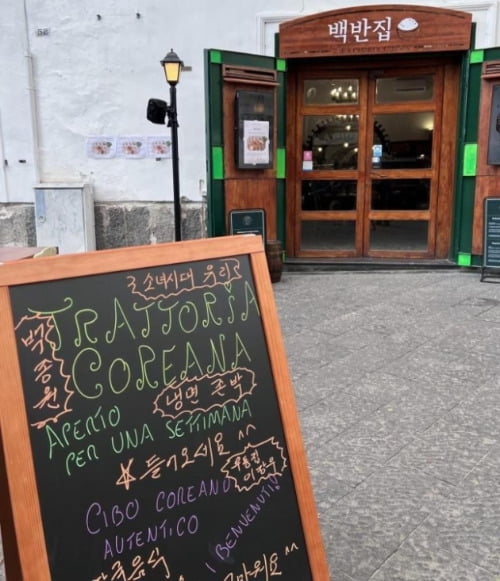 백반집
소녀시대 유리
백종원
TRATTORIA
COREANA
냉면 존박
APERTO
PER UNA SETTIMANA
들어오세요 ^^
이장우
CIBO COREANO
AUTENTICO
BENVENUTI
한국음식
^^